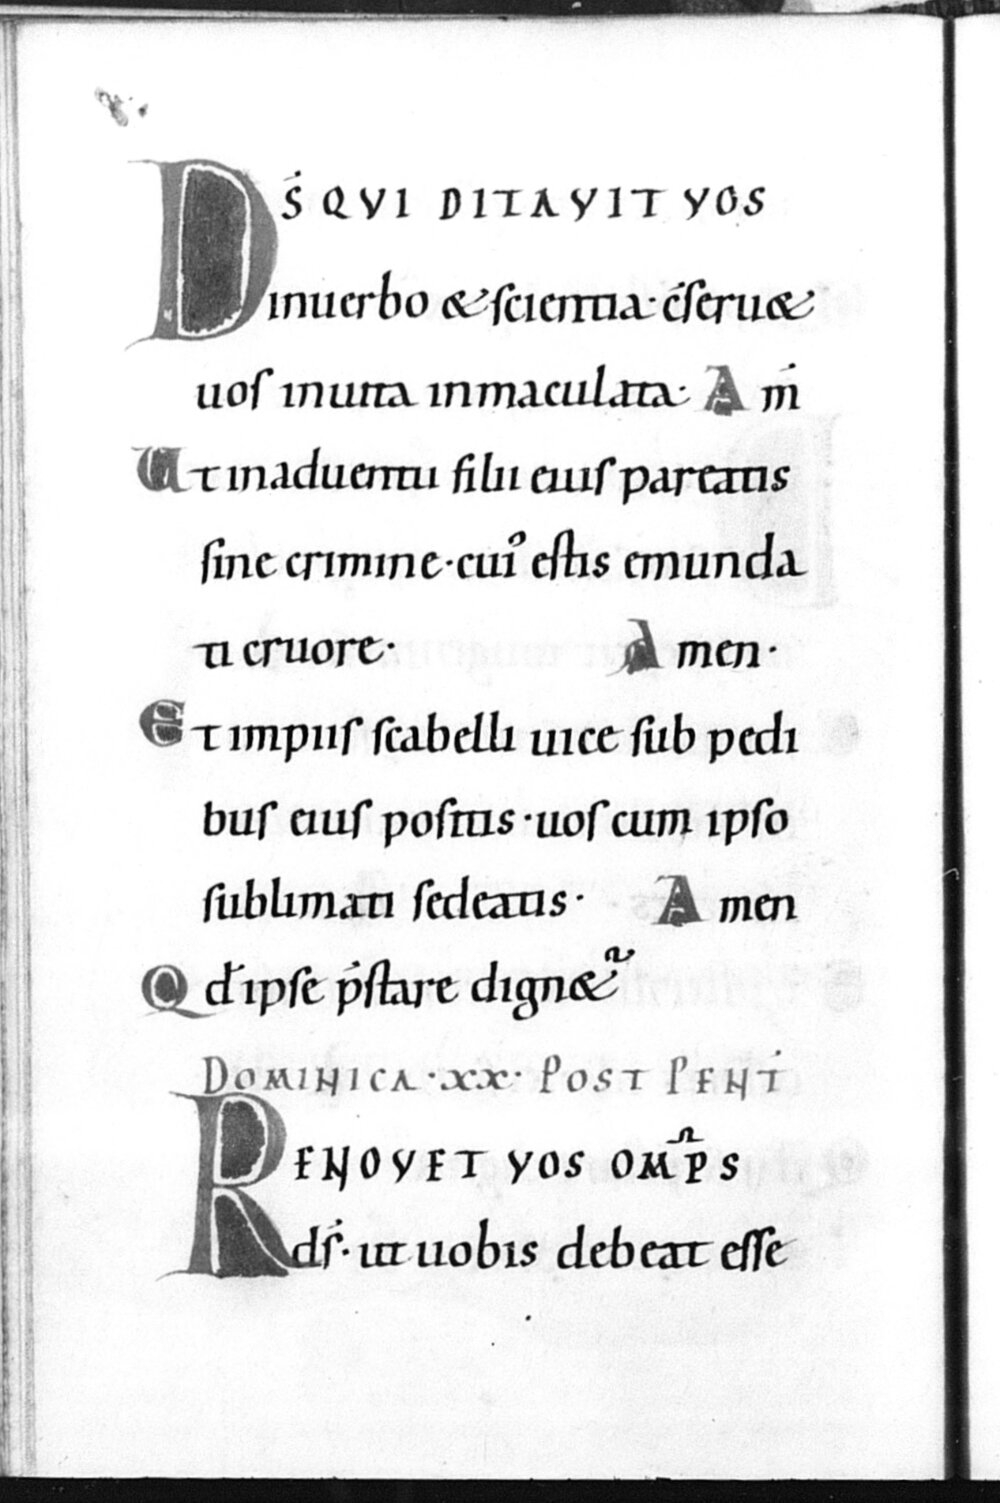 DS̄ QVI DITAVIT VOS
inuerbo & scientia· c̄seru&
uos inuita inmaculata· Am̄
Ut inaduentu filii eius pareatis
sine crimine· cui᾽ estis emunda
ti cruore· Amen·
Et impiis scabelli uice sub pedi
bus eius positis· uos cum ipso
sublimati sedeatis· Amen
Qd̄ ipse p̄stare dign&᷑
DOMINICA ·XX· POST PENT̄
RENOVET VOS OMP̄S
ds̄· ut uobis debeat esse